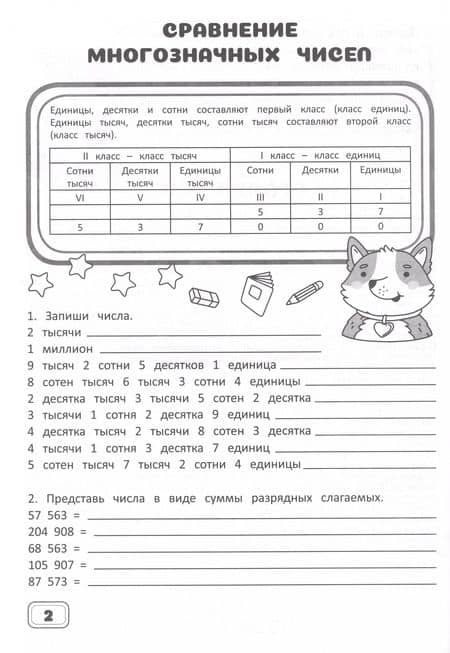 СРАВНЕНИЕ
МНОГОЗНАЧНЫХ ЧИСЕЛ
Единицы, десятки и сотни составляют первый класс (класс единиц).
Единицы тысяч, десятки тысяч, сотни тысяч составляют второй класс
(класс тысяч).
II класс – класс тысяч I класс – класс единиц
Сотни тысяч Десятки тысяч Единицы тысяч Сотни Десятки Единицы
VI V IV III II I
5 3 7
5 3 7 0 0 0
1. Запиши числа.
2 тысячи
1 миллион
9 тысяч 2 сотни 5 десятков 1 единица
8 сотен тысяч 6 тысяч 3 сотни 4 единицы
2 десятка тысяч 3 тысячи 5 сотен 2 десятка
3 тысячи 1 сотня 2 десятка 9 единиц
4 десятка тысяч 2 тысячи 8 сотен 3 десятка
4 тысячи 1 сотня 3 десятка 7 единиц
5 сотен тысяч 7 тысяч 2 сотни 4 единицы
2. Представь числа в виде суммы разрядных слагаемых.
57 563 =
204 908 =
68 563 =
105 907 =
87 573 =
2